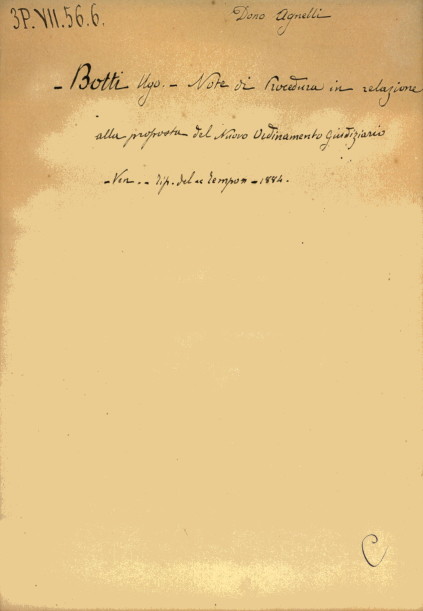 3P.VII.56.6.
Dono Agnelli
- Botti Ugo. - Note di Procedura in relazione
alla proposta del Nuovo Ordinamento Giudiziario
- Ven. - Tip. del "Tempo" - 1884.
C